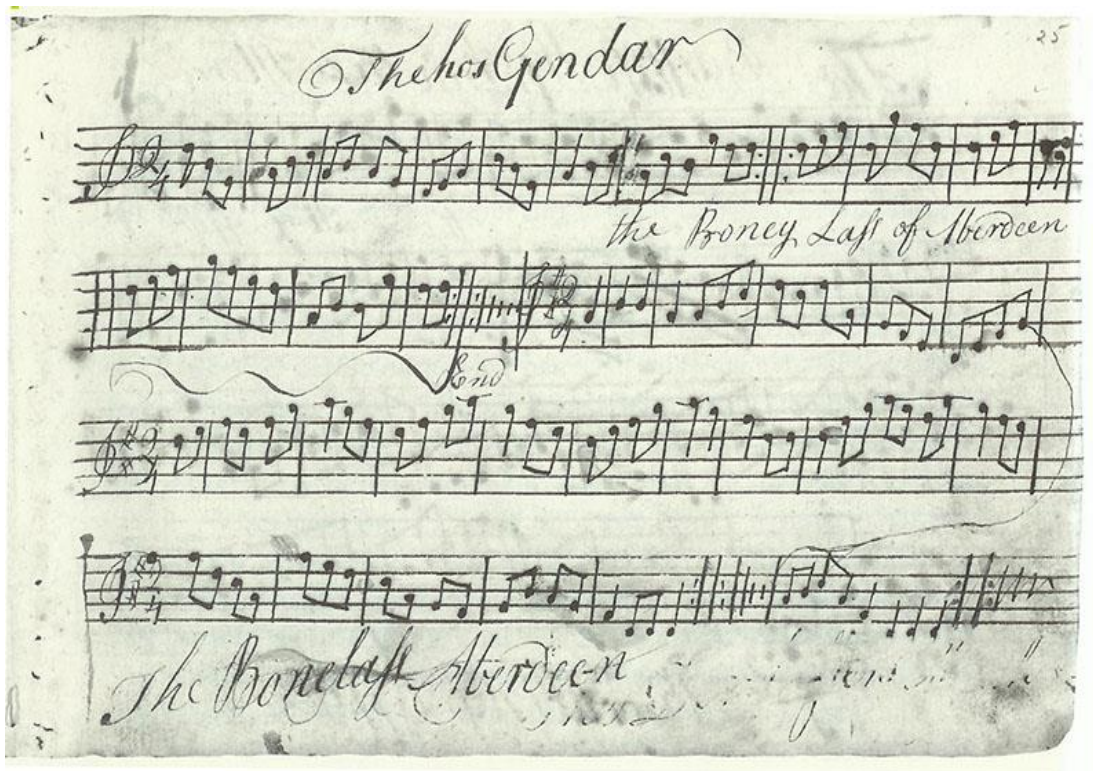 25
The hos Gendar
the Boney Lass of Aberdeen
End
The Bonelass Aberdeen